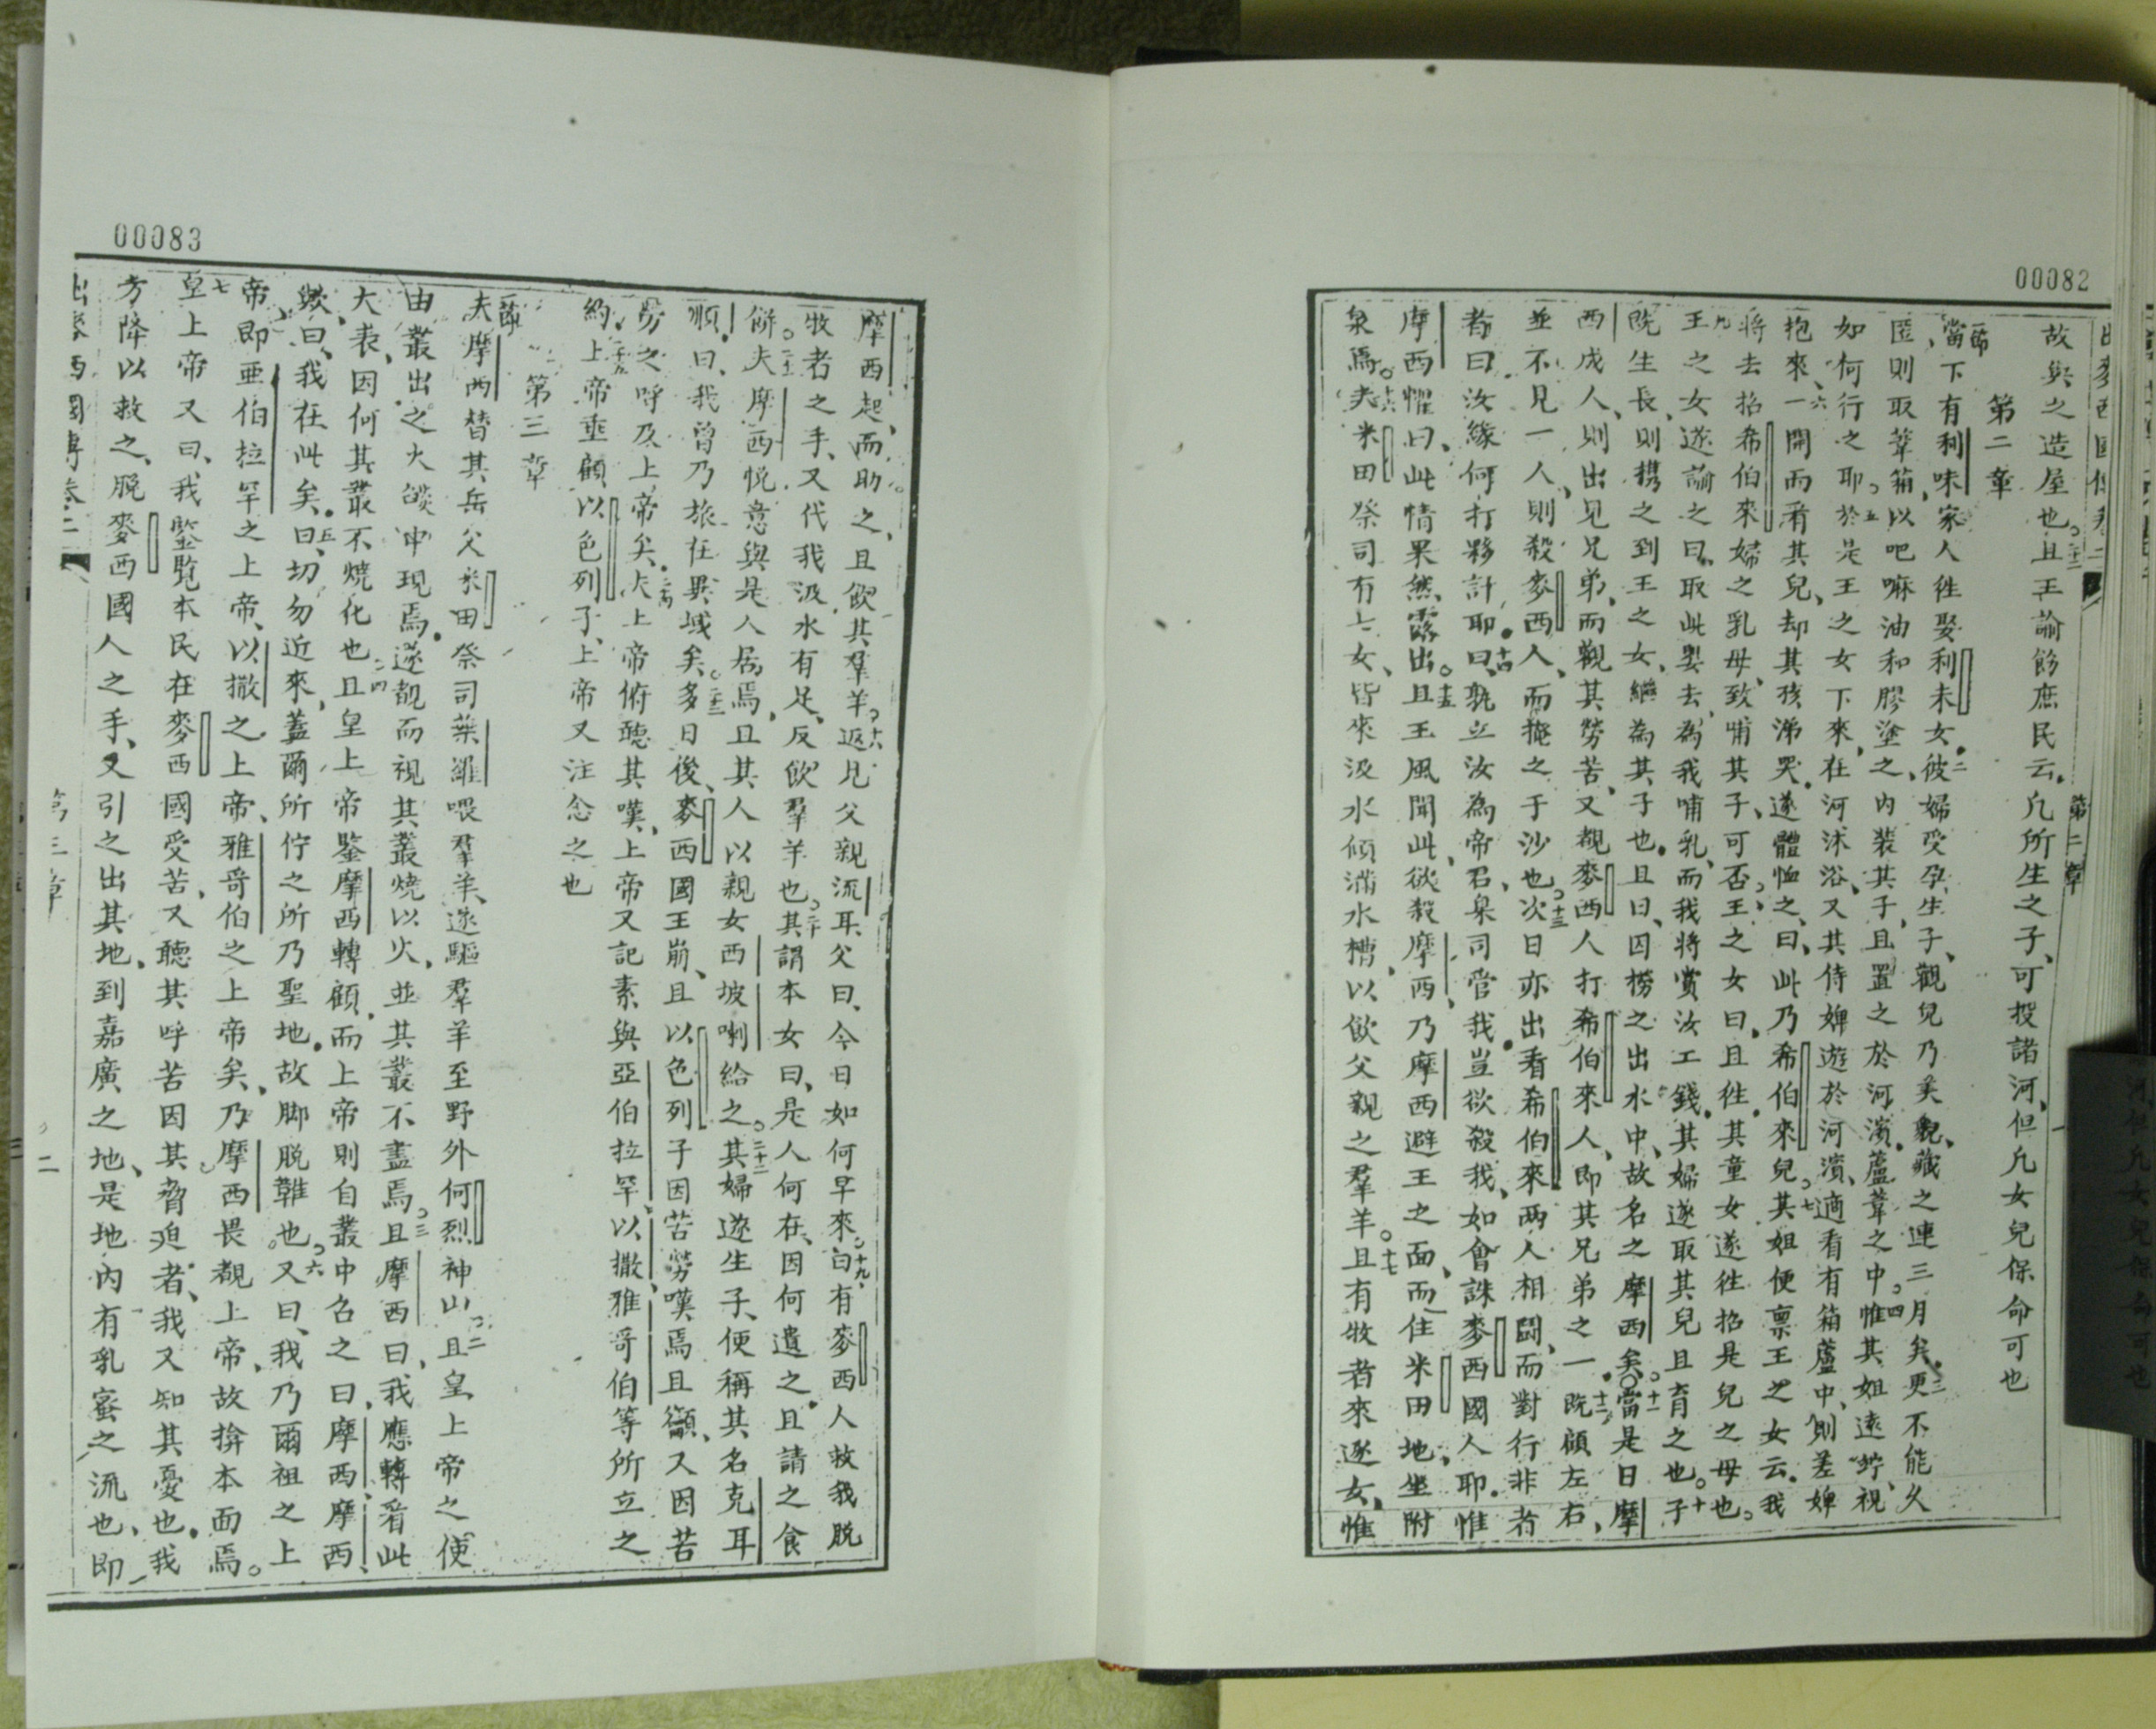 00082
出麥西國傳卷二
第二章
故與之造屋也。二十二且王諭飭庶民云。凡所生之子、可投諸河、但凡女兒保命可也
第二章
一節當下有利味家人徃娶利未女。二彼婦受孕生子、觀兒乃美貌、藏之連三月矣。三更不能久
匿則取葦箱、以吧嘛油和膠塗之、內裝其子、且置之於河濱。蘆葦之中。四惟其姐遠竚、視
如何行之耶。五於是王之女下來、在河沭浴、又其侍婢遊於河濱、適看有箱蘆中、則差婢
抱來、六一開而看其兒、却其孩涕哭。遂體恤之、曰、此乃希伯來兒。七其姐便禀王之女云。我
將去招希伯來婦之乳母、致哺其子、可否。王之女曰。且徃。其童女遂徃招是兒之母也。
九王之女遂諭之曰、取此嬰去、為我哺乳、而我將賞汝工錢。其婦遂取其兒且育之也。十子
既生長、則携之到王之女、繼為其子也。且曰、因撈之出水中、故名之摩西矣。〇十一當是日摩
西成人、則出見兄弟、而觀其勞苦、又覩麥西人打希伯來人、即其兄弟之一。十二既顧左右、
並不見一人、則殺麥西人、而掩之于沙也。十三次日亦出看希伯來兩人相鬪、而對行非者
者曰、汝緣何打夥計耶。十四曰、孰立汝為帝君、臬司管我。豈欲殺我、如會誅麥西國人耶。惟
摩西懼曰、此情果然露出。十五且王風聞此、欲殺摩西、乃摩西避王之面、而住米田地、坐附
泉焉。十六夫米田祭司有七女、皆來汲水傾滿水槽、以飲父親之羣羊。十七且有牧者來逐女、惟
00083
摩西起、而助之、且飲其羣羊。十八返見父親流耳、父曰、今日如何早來。十九曰、有麥西人救我脫
牧者之手、又代我汲水有足、反飲羣羊也。二十其謂本女曰、是人何在、因何遺之。且請之食
餅。二十一夫摩西悅意與是人居焉、且其人以親女西坡喇給之。二十二其婦遂生子、便稱其名克耳
順、曰、我曾乃旅在異域矣。二十三多日後、麥西國王崩、且以色列子因苦勞嘆焉且籲、又因苦
勞之呼及上帝矣。二十四夫上帝俯聽其嘆、上帝又記素與亞伯拉罕、以撒、雅哥伯等所立之
約、二十五上帝垂顧以色列子、上帝又注念之也
第三章
一節夫摩西替其岳父米田祭司葉羅喂羣羊、遂驅羣羊至野外何烈神山。二且皇上帝之使
由叢出之火燄中現焉。遂覩而視其叢燒以火、並其叢不盡焉。三且摩西曰、我應轉看此
大表、因何其叢不燒化也。四且皇上帝鑒摩西轉顧、而上帝則自叢中召之曰、摩西、摩西、
歟曰、我在此矣。五曰、切勿近來、蓋爾所佇之所乃聖地。故脚脫鞋也。六又曰、我乃爾祖之上
帝、即亞伯拉罕之上帝、以撒之上帝、雅哥伯之上帝矣、乃摩西畏覩上帝、故揜本面焉。
七皇上帝又曰、我鑒覧本民在麥西國受苦、又聽其呼苦因其脅迫者、我又知其憂也。我
方降以救之、脫麥西國人之手、又引之出其地、到嘉廣之地、是地內有乳蜜之流也、即
出麥西國傳卷二
第三章
二